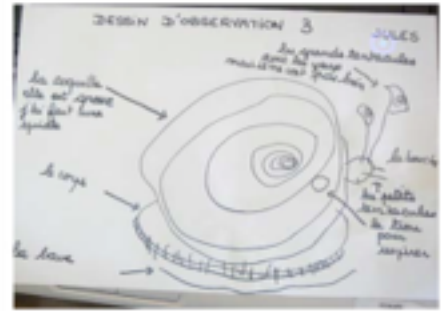 DESSIN D'OBSERVATION 3
JULES
les grands tentacules
avec les yeux
mais elle voit pas bien
la coquille
elle est grosse
le corps
les petits
tentacules
le trou
pour
respirer
la bave